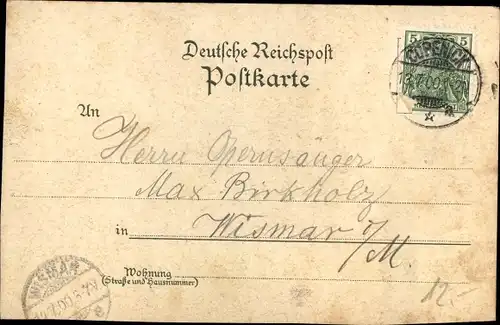 Deutsche Reichspost
Postkarte
5 5
CÖPENICK
13.7.00
a
An
Herrn Opernsänger
Max Birkholz
in Wismar i/M.
Wohnung
(Straße und Hausnummer)
WISMAR
e
12,-